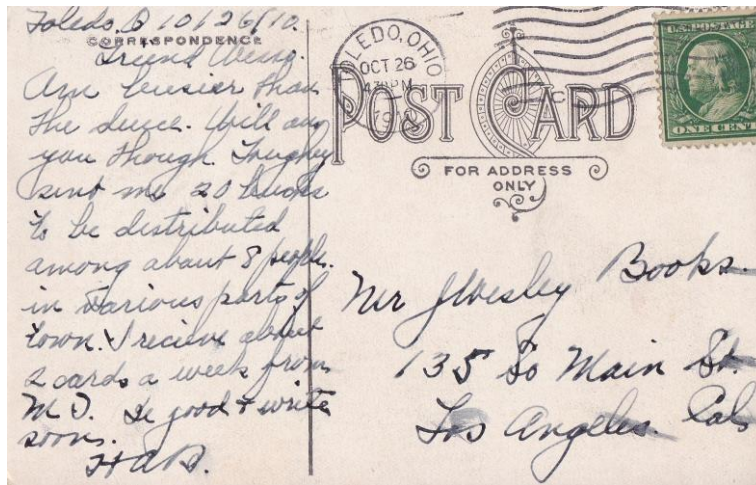 Toledo, O 10/26/10.
CORRESPONDENCE
Friend
Am busier than
the deuce. Will ans
you though.
sent me 20 books
to be distributed
among about 8 people.
in various parts of
town. I recieve about
2 cards a week from
M.O. Be good & write
soon.
H.A.B.
TOLEDO, OHIO
OCT 26
4 PM
1910
POST CARD
FOR ADDRESS
ONLY
U.S. POSTAGE
ONE CENT
Mr J Wesley Books.
135 So Main St.
Los Angeles. Cal